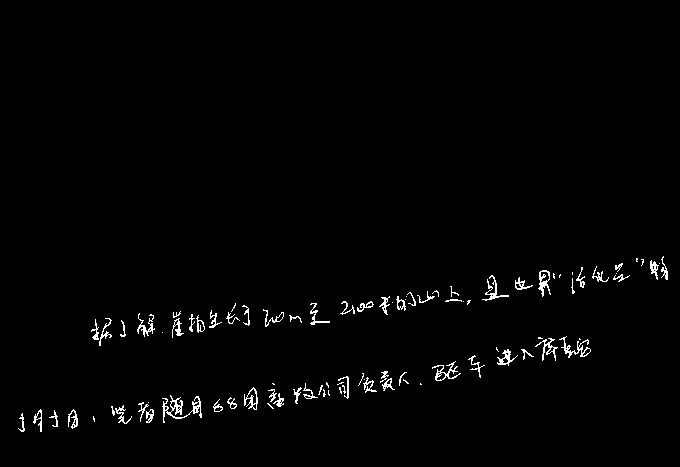 据了解,崖柏生长于700m至2100米的山上,是世界“活化石”物
5月5日,笔者随同68团畜牧公司负责人,驱车进入库